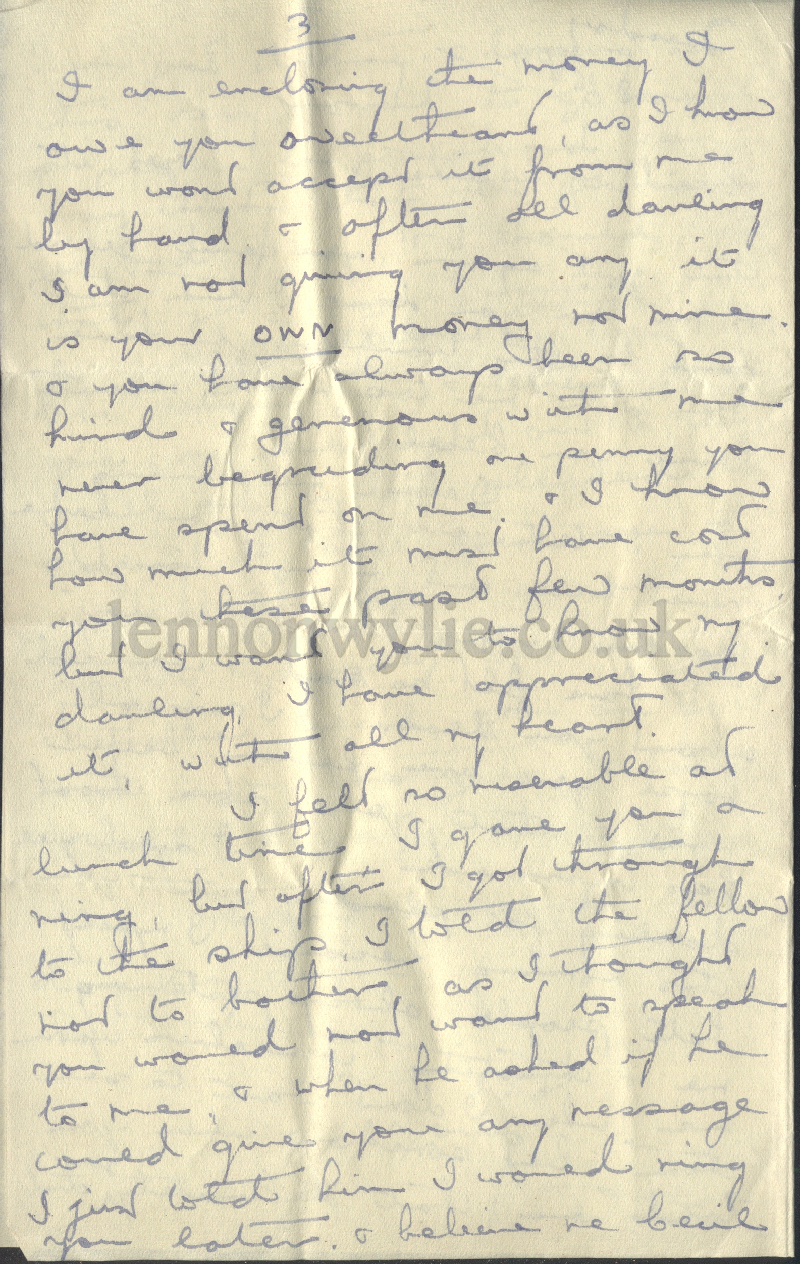 3
I am enclosing the money I
owe you sweetheart, as I know
you wont accept it from me
by hand & after all darling
I am not giving you any it
is your OWN money not mine.
& you have always been so
kind & generous with me
never begruding one penny you
have spend on me. & I know
how much it must have cost
you these past few months,
lennonwylie.co.uk
but I want you to know my
darling, I have appreciated
it, with all my heart.
I felt so miserable at
lunch time I gave you a
ring, but after I got through
to the ship, I told the fellow
not to bother as I thought
you would not want to speak
to me, & when he asked if he
could give you any message
I just told him I would ring
you later. & believe me